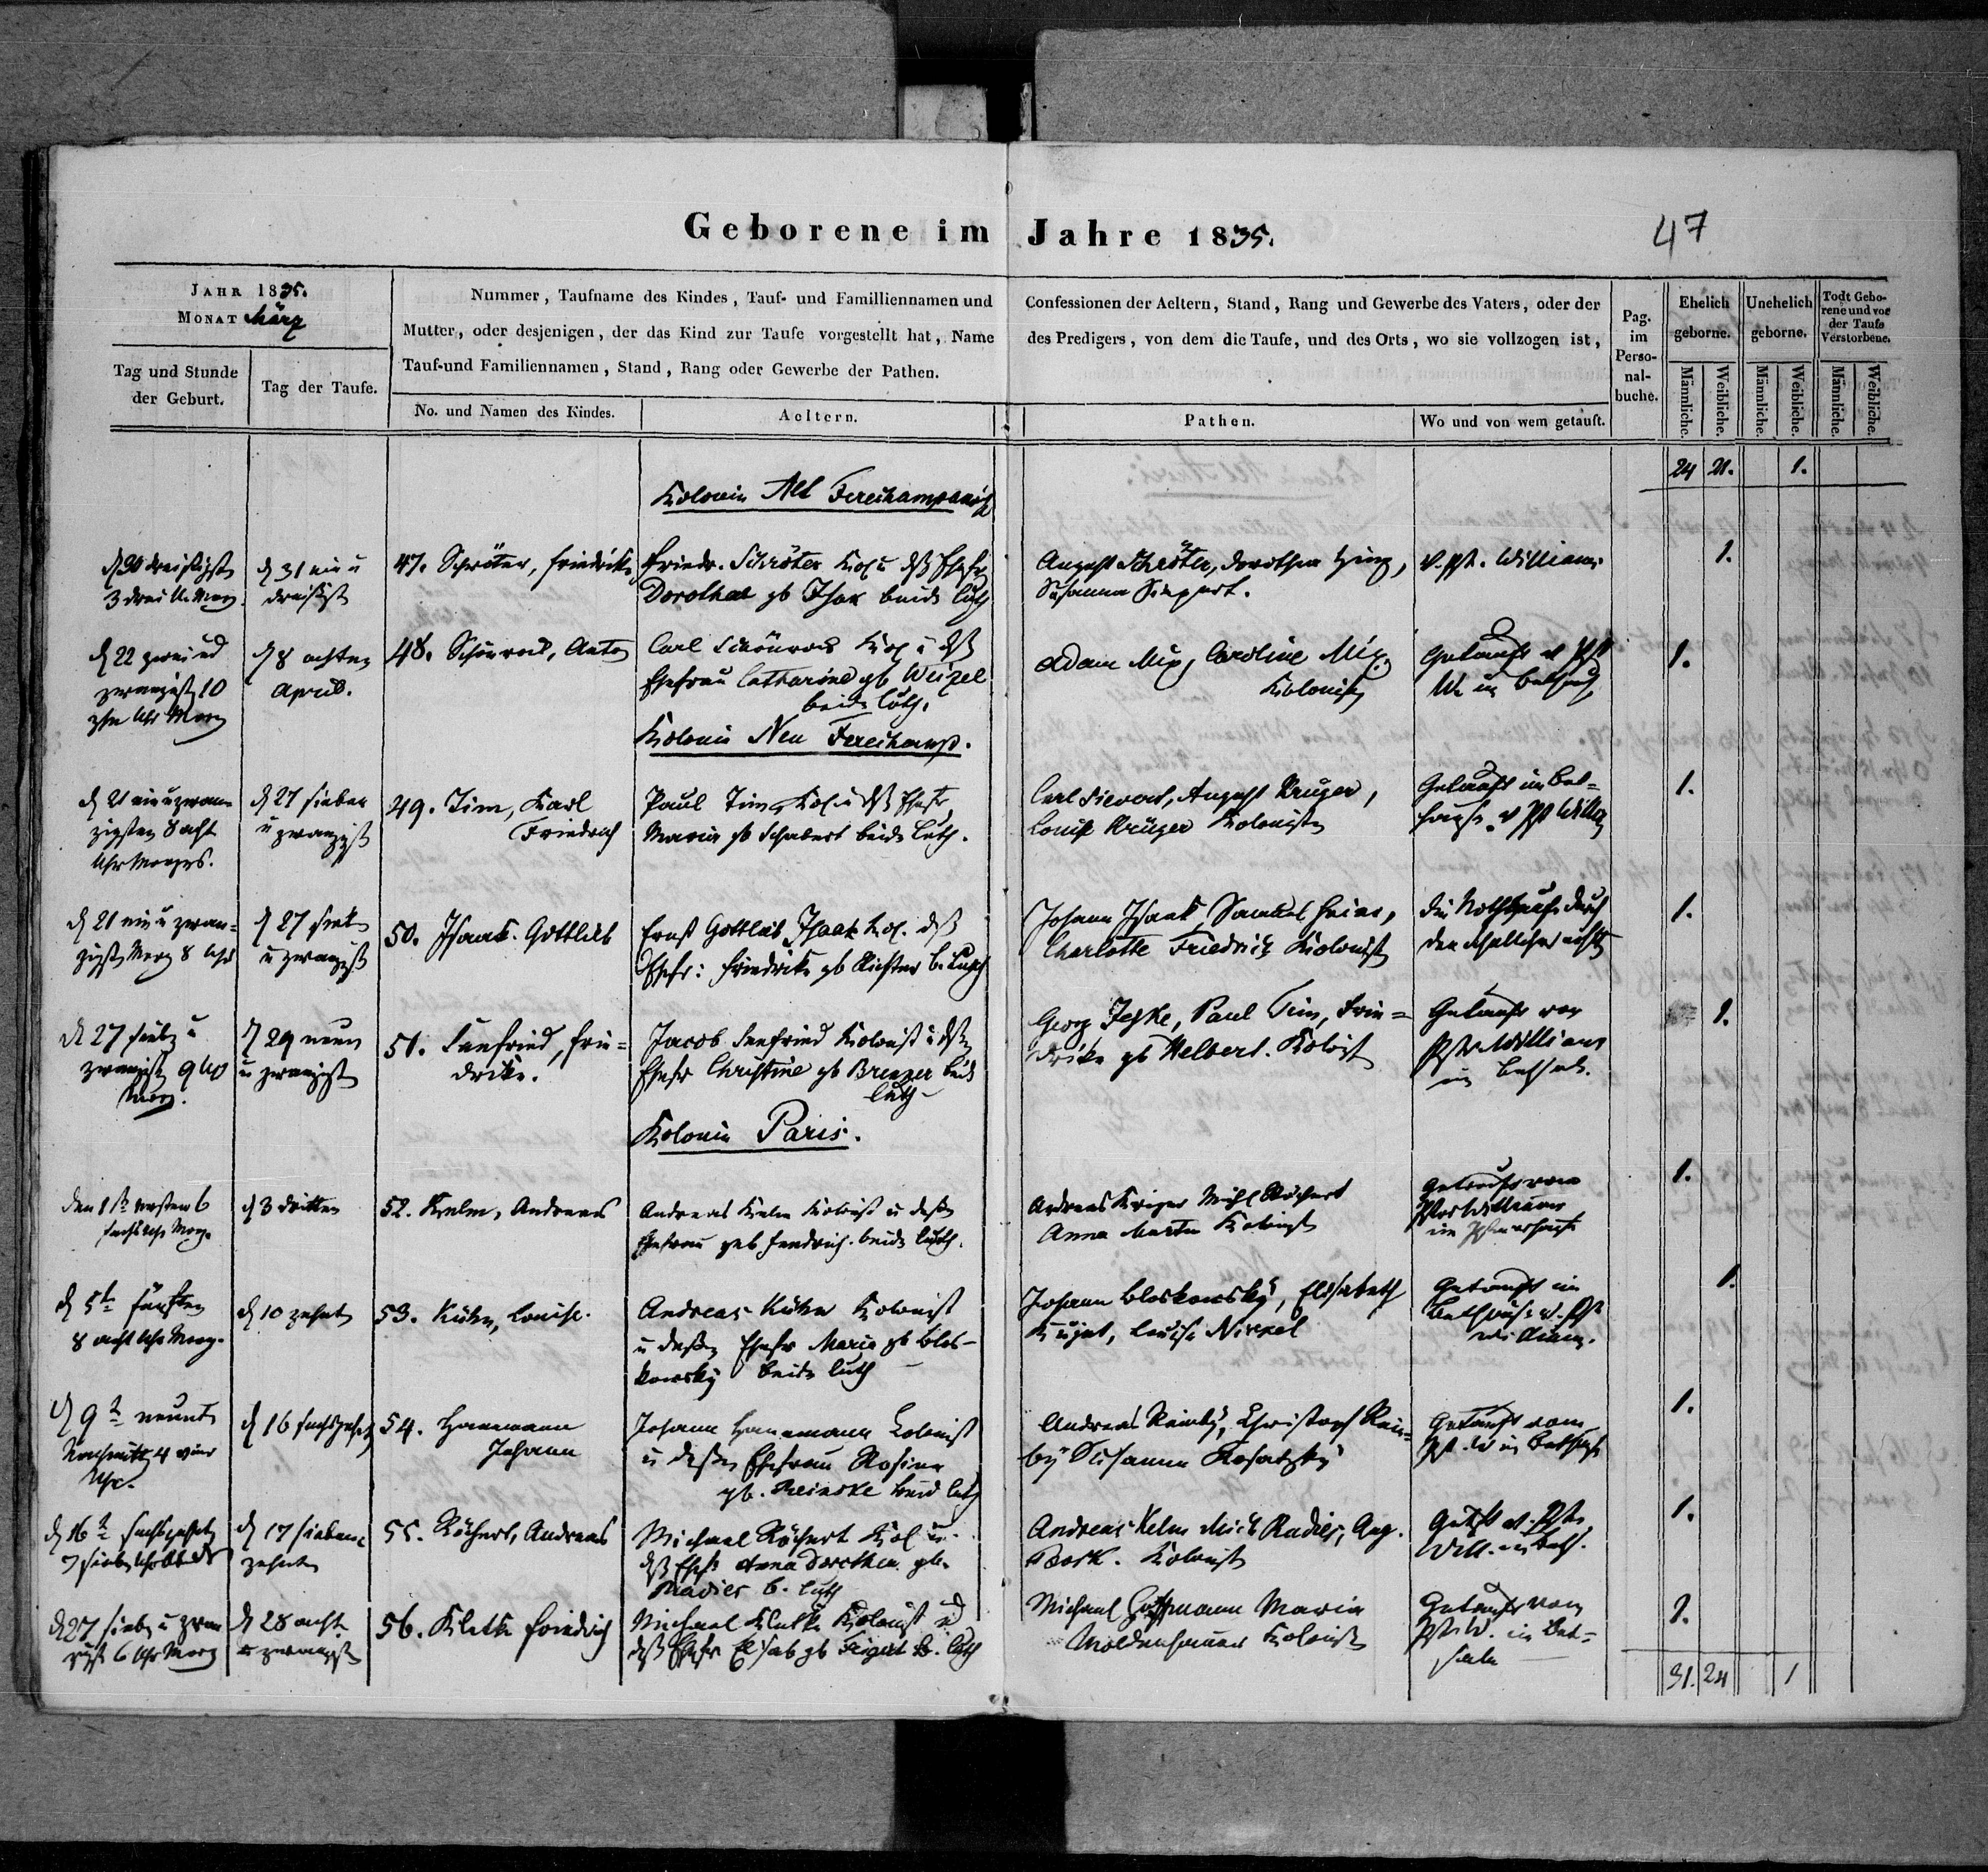 Geborene im Jahre 1835.
47
JAHR 1835.
MONAT März
Tag und Stunde
der Geburt.
Tag der Taufe.
Nummer, Taufname des Kindes, Tauf- und Familliennamen und
Mutter, oder desjenigen, der das Kind zur Taufe vorgestellt hat, Name
Tauf-und Familiennamen, Stand, Rang oder Gewerbe der Pathen.
No. und Namen des Kindes.
Aeltern.
Confessionen der Aeltern, Stand, Rang und Gewerbe des Vaters, oder der
des Predigers, von dem die Taufe, und des Orts, wo sie vollzogen ist,
Pathen.
Wo und von wem getauft.
Pag.
im
Perso-
nal-
buche.
Ehelich
geborne.
Unehelich
geborne.
Todt Gebo-
rene und vor
der Taufe
Verstorbene.
Männliche.
Weibliche.
Männliche.
Weibliche.
Männliche.
Weibliche.
24 21. 1.
Kolonie Alt Ferechampenoise
d 30 dreißigst
3 drei U. Morg.
d 31 ein u
dreißigst
47. Schröter, Friedrike
Friedr. Schröter Kol u deß Ehefr
Dorothea gb Isak beide luth
August Schröter, Dorothea
Susanna
v. Pst. Williams
1.
d 22 zwei ud
zwanzigst 10
zehn Uhr Morg
d 8 achten
April.
48. Anton
Carl Kol u deß
Ehefrau Catharine gb Weizel
beide luth.
Adam Mix, Caroline Mix,
Kolonist
Getauft v Pst
W. im Bethaus
1.
Kolonie Neu Ferechamp.
d 21 ein u zwan-
zigsten 8 acht
Uhr Morgens.
d 27 sieben
u zwanzigst
49. Tim, Karl
Friedrich
Paul Tim, Kol u deß Ehefr
Maria gb Schabert beide luth.
Carl Sievert, August Krüger,
Louise Krüger Kolonisten
Getauft im Bet-
hause v Pst Willia
1.
d 21 ein u zwan-
zigst Morg 8 Uhr
d 27 sieb
u zwanzigst
50. Isaak. Gottlieb
Ernst Gottlieb Isaak Kol. deß
Ehefr: Friedrike gb Richter b. luth
Johann Isaak, Samuel
Charlotte Friedrich Kolonist
Die Nothtaufe durch
den Schullehrer
1.
d 27 sieb u
zwanzigst 9 Uhr
Morg.
d 29 neun
u zwanzigst
51. Senfried, Frie-
drike.
Jacob Senfried Kolonist u deß
Ehefr Christine gb beide
luth
Georg Jeske, Paul Tim, Frie-
drike gb Helbert. Kolonist
Getauft von
Pstr Williams
im Bethaus.
1.
Kolonie Paris.
den 1 ersten 6
sechs Uhr Morg.
d 3 dritten
52. Kelm, Andreas
Andreas Kelm Kolonist u deßen
Ehefrau geb beide luth.
Andreas Kriger Michl Röchert
Anna Martin Kolonist
Getauft von
Pstor Williams
im
1.
d 5 fünften
8 acht Uhr Morg.
d 10 zehnt
53. Kühn, Louise.
Andreas Kühn Kolonist
u deßen Ehefr Maria gb Blos-
kowsky beide luth
Johann Bloskowsky, Elisabeth
Kujat, Louise Nickel
Getauft im
Bethause v. Pst
Williams.
1.
d 9 neunt
Nachmitt 4 vier
Uhr.
d 16 sechszehnt
54. Hannemann
Johann
Johann Hannemann Kolonist
u deßen Ehefrau Rosine
gb. Reinske beid luth
Andreas Christoph Rein-
by Susanna Kosatzky
Getauft vom
Pst. W im Bethause
1.
d 16 sechszehnt
7 sieb Uhr Abends
d 17 sieben-
zehnten
55. Röchert, Andreas
Michael Röchert Kol u.
deß Ehefr Anna Dorothea gb.
Radies b. luth
Andreas Kelm Mich Radies, Aug.
Bork. Kolonist
Getft v. Pst.
Will. im Beth.
1.
d 27 sieb u zwan
zigst 6 Uhr Morg
d 28 acht
u zwanzigst
56. Kletke Friedrich
Michael Kletke Kolonist ud
deß Ehefr Elisab gb b. luth
Michael Maria
Moldenhauer Kolonist
Getauft vom
Pst W. im Bet-
saale
1.
31. 24 1